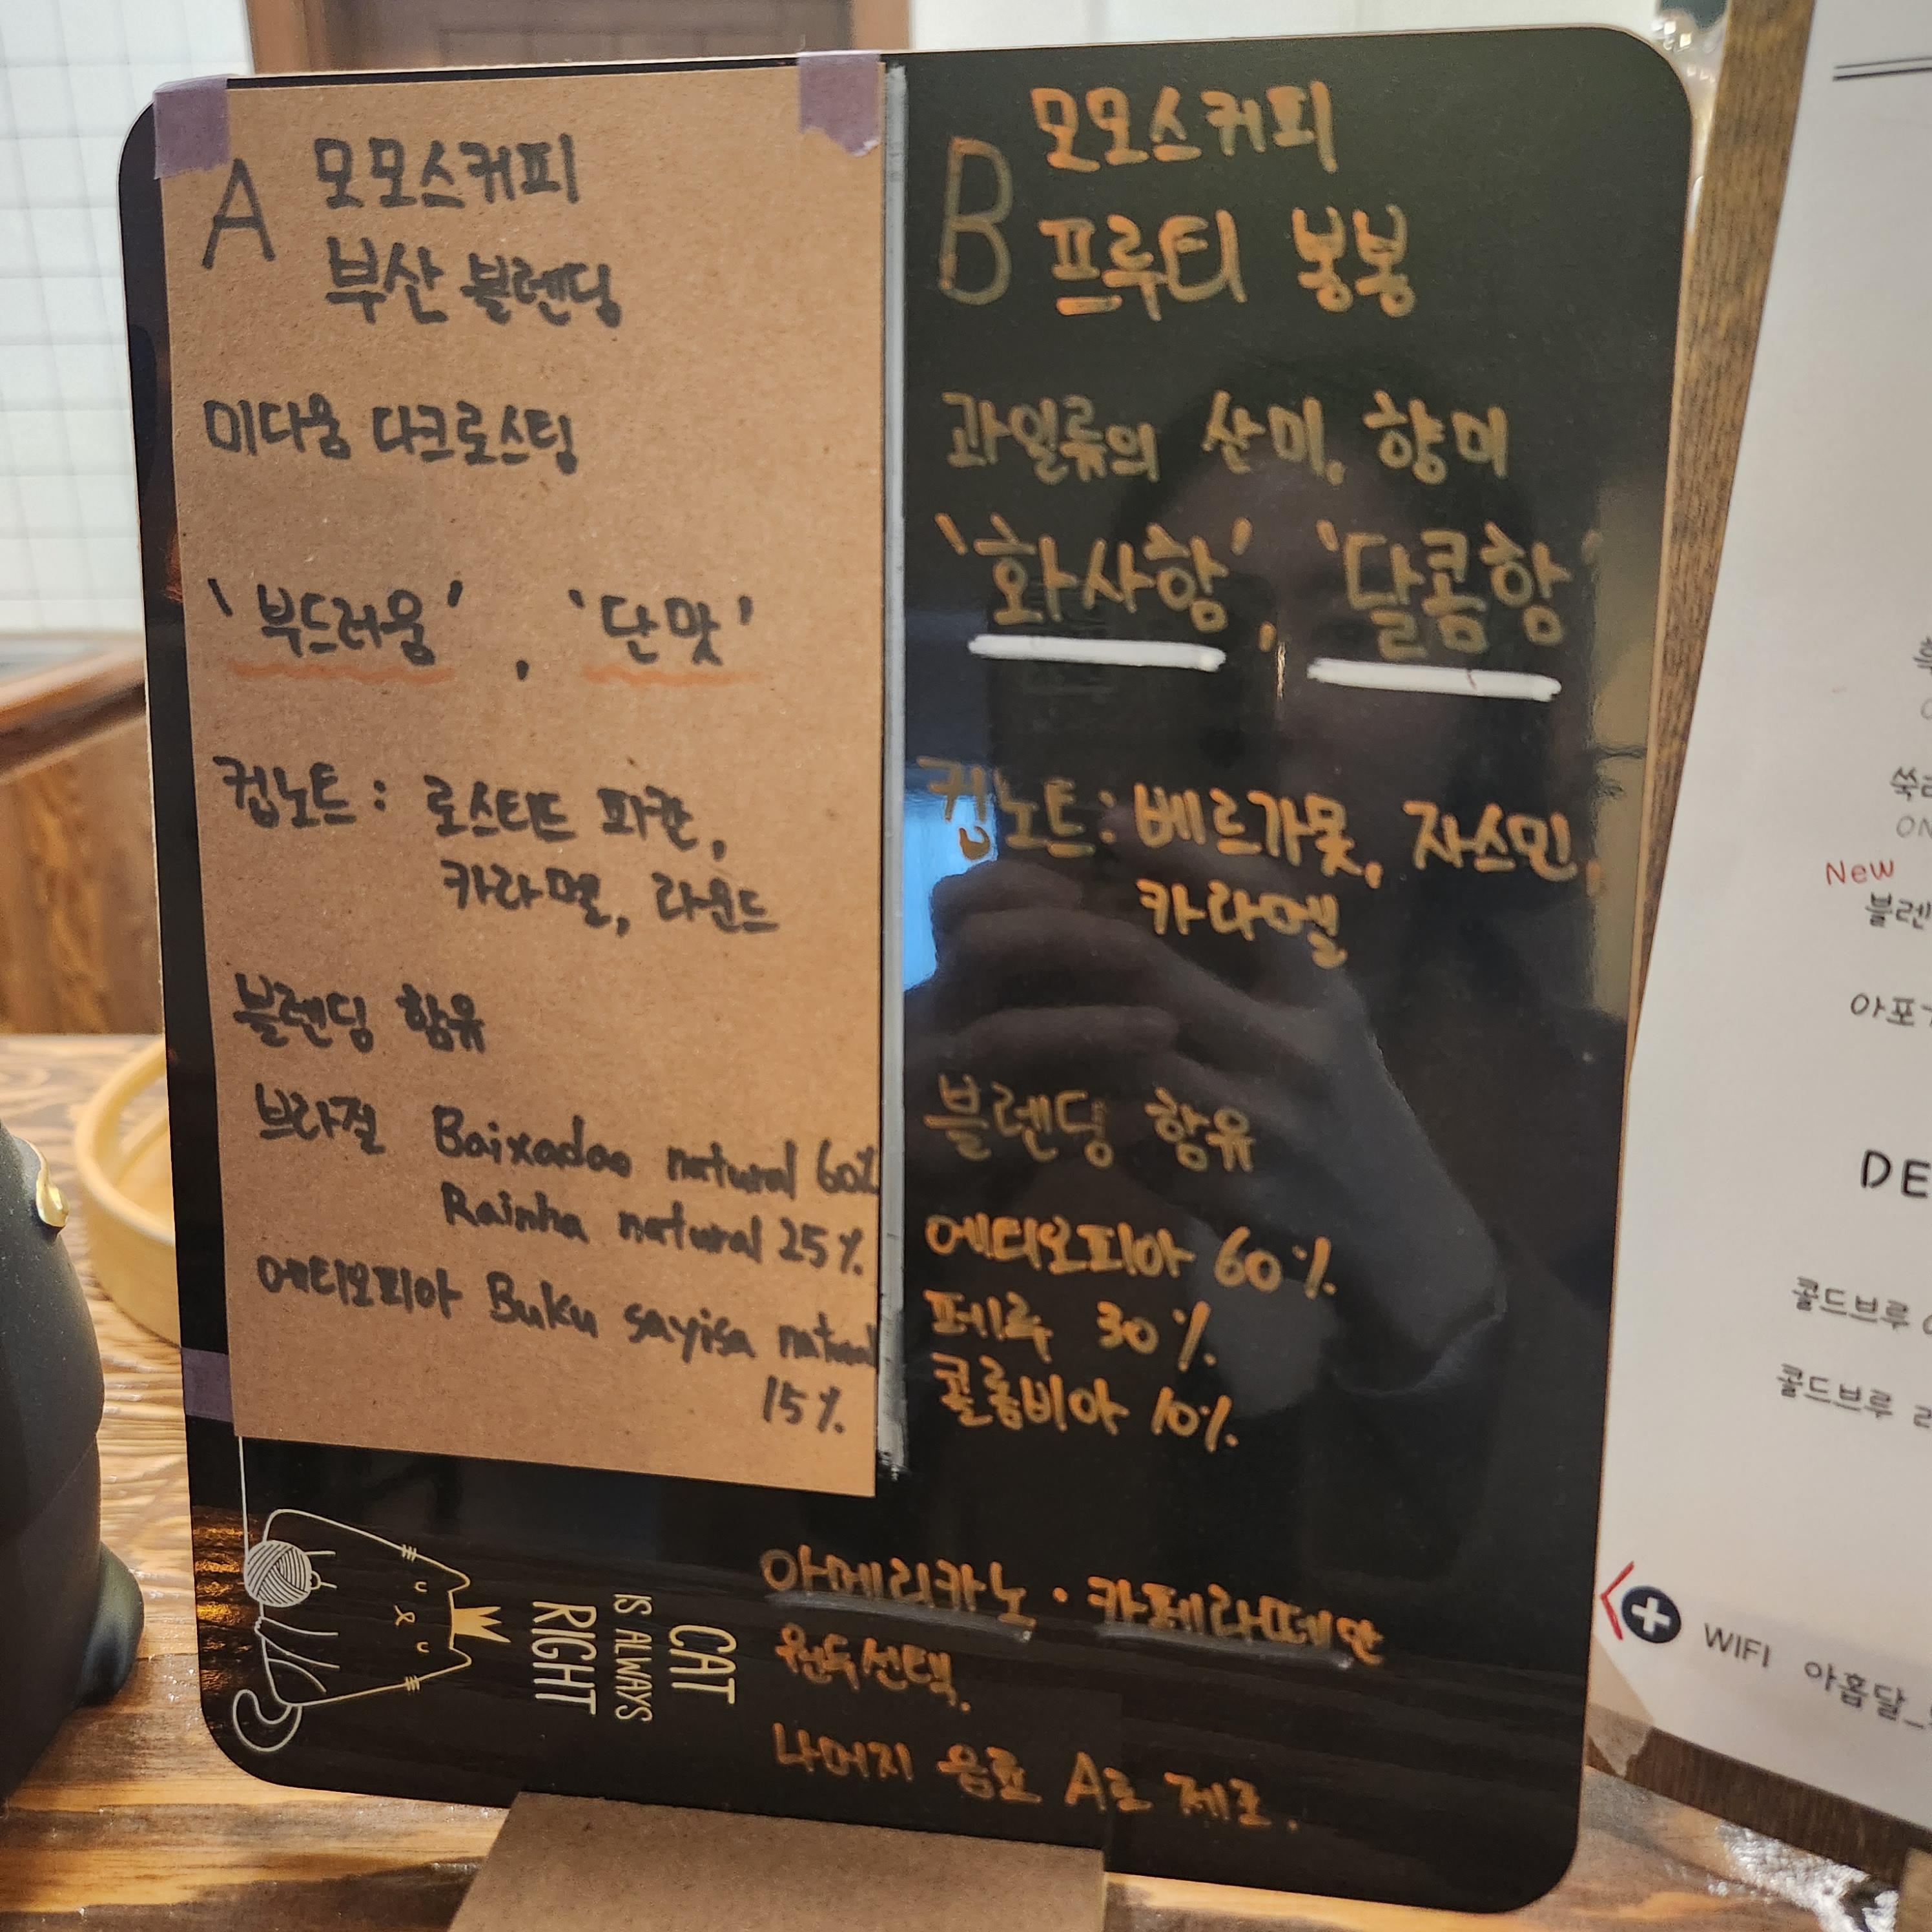 A 모모스커피
부산 블렌딩
미디움 다크로스팅
'부드러움', '단맛'
컵노트: 로스티드 피칸,
카라멜, 라운드
블렌딩 함유
브라질 Baixadao natural 60%
Rainha natural 25%
에티오피아 Buku sayisa natural
15%
B 모모스커피
프루티 봉봉
과일류의 산미, 향미
'화사함', '달콤함'
컵노트: 베르가못, 자스민,
카라멜
블렌딩 함유
에티오피아 60%
페루 30%
콜롬비아 10%
아메리카노 · 카페라떼만
원두선택.
나머지 음료 A로 제조.
CAT
IS ALWAYS
RIGHT
ON
New
블렌
아포
DE
콜드브루
콜드브루
WIFI 아홈달_